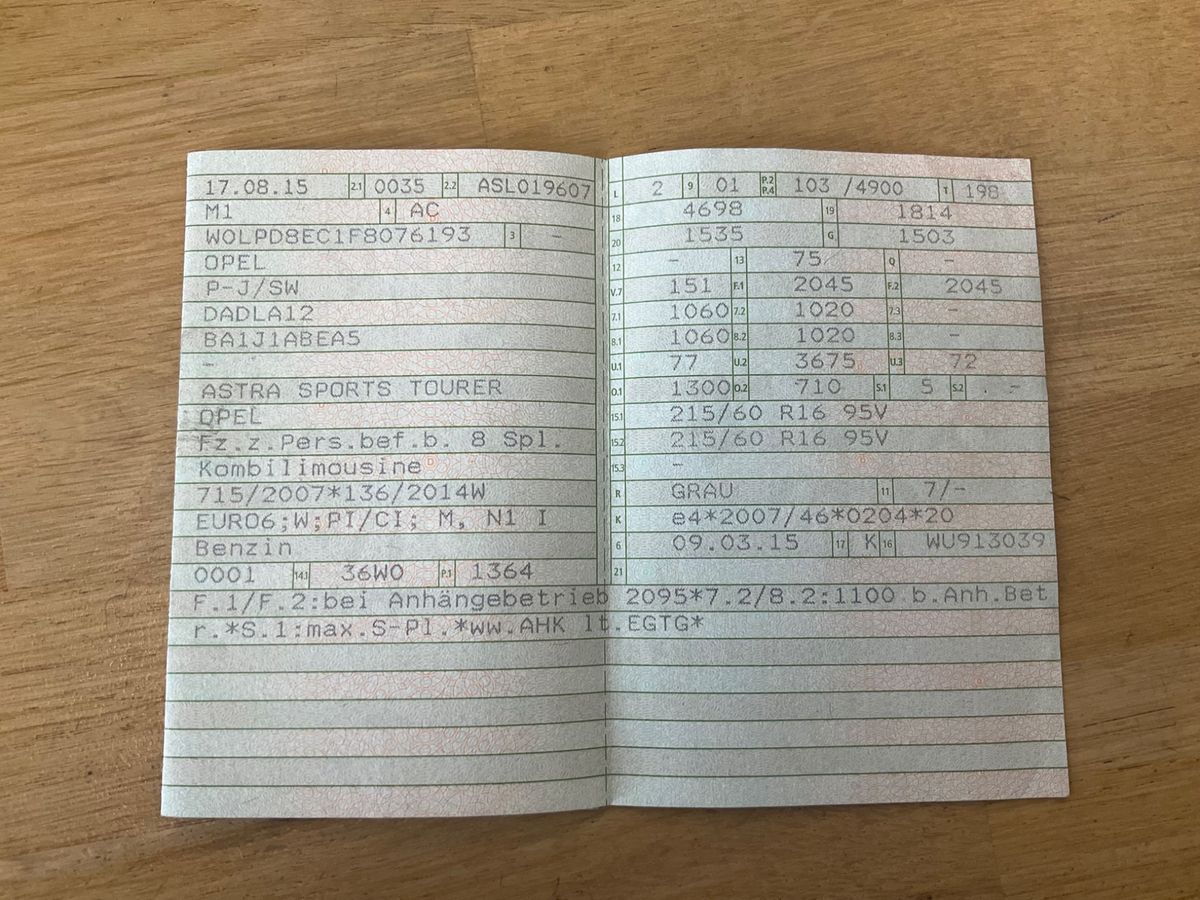 17.08.15 2.1 0035 2.2 ASL019607
M1 4 AC
W0LPD8EC1F8076193 3 -
OPEL
P-J/SW
DADLA12
BA1J1ABEA5
-
ASTRA SPORTS TOURER
OPEL
Fz.z.Pers.bef.b. 8 Spl.
Kombilimousine
715/2007*136/2014W
EURO6;W;PI/CI; M, N1 I
Benzin
0001 14.1 36W0 P.1 1364
L 2 9 01 P.2 P.4 103 /4900 T 198
18 4698 19 1814
20 1535 G 1503
12 - 13 75 Q -
V.7 151 F.1 2045 F.2 2045
7.1 1060 7.2 1020 7.3 -
8.1 1060 8.2 1020 8.3 -
U.1 77 U.2 3675 U.3 72
O.1 1300 O.2 710 S.1 5 S.2 -
15.1 215/60 R16 95V
15.2 215/60 R16 95V
15.3 -
R GRAU 11 7/-
K e4*2007/46*0204*20
6 09.03.15 17 K 16 WU913039
21
F.1/F.2:bei Anhängebetrieb 2095*7.2/8.2:1100 b.Anh.Bet
r.*S.1:max.S-Pl.*ww.AHK lt.EGTG*